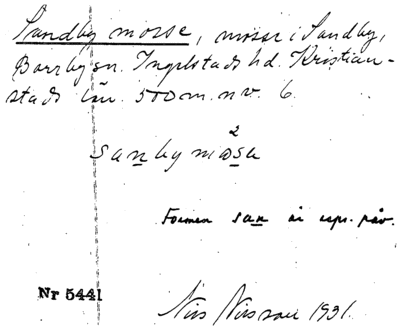 Sandby mosse, mosse i Sandby,
Borrby sn. Ingelstads hd. Kristian-
stads län. 500 m. n.v. 6.
2
sanbymosa
Formen san är
Nr 5441
Nils Nilsson 1931.